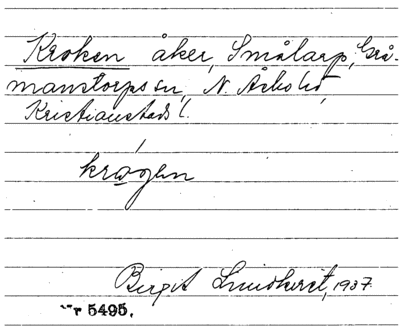 Kroken åker, Smålarp, Grå-
manstorps sn, N. Åsbo hd,
Kristianstads l.
krɷgen
Birgit Lindkvist, 1937.
Nr 5495.